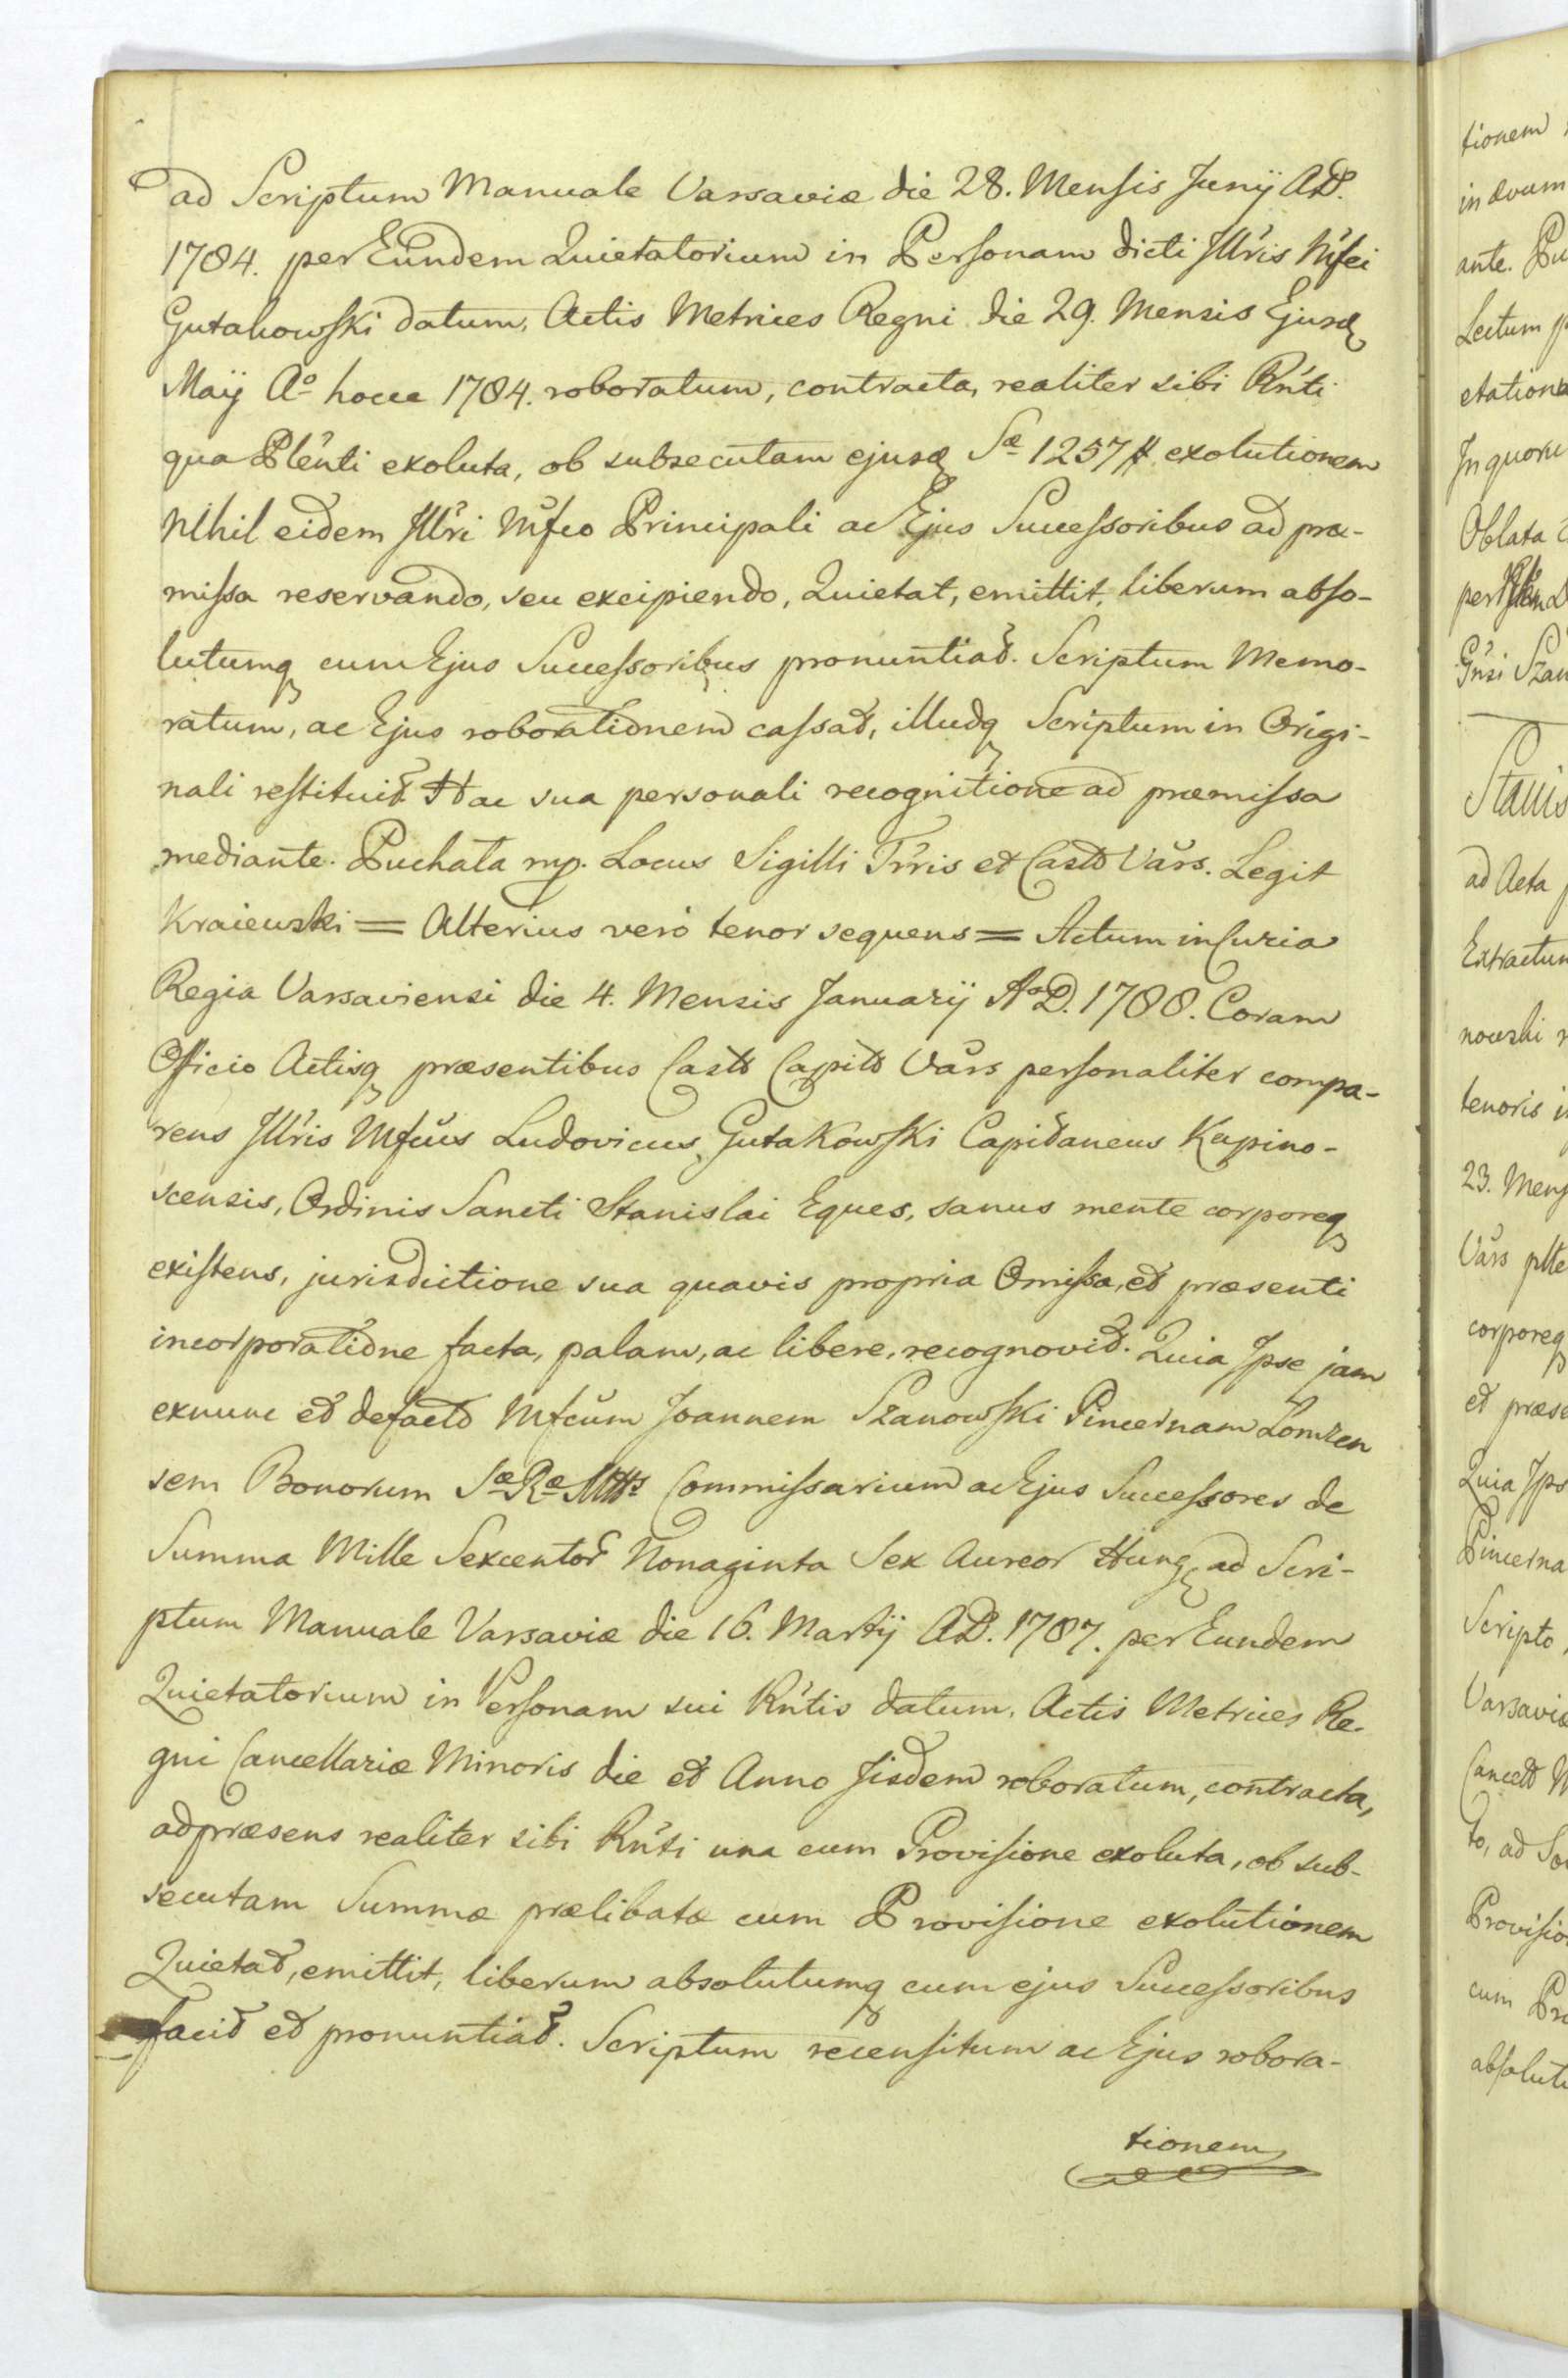 ad Scriptum Manuale Varsaviæ die 28. Mensis Junÿ AD.
1784. per Eundem Quietatorium in Personam dicti Jllris Mfci
Gutakowski datum, Actis Metrices Regni die 29. Mensis Ejusdꝫ
Maÿ Aº hocce 1784. roboratum, contracta, realiter sibi Rnti
qua Plenti exoluta, ob subsecutam ejusdꝫ Sæ 1257 # exolutionem
Nihil eidem Jllri Mfco Principali ac Ejus Successoribus ad præ-
missa reservando, seu excipiendo, Quietat, emittit, liberum abso-
lutumqꝫ cum Ejus Successoribus pronuntiat. Scriptum Memo-
ratum, ac Ejus roborationem cassat, illudqꝫ Scriptum in Origi-
nali restituit Hac sua personali recognitione ad præmissa
mediante. Puchata mp. Locus Sigilli Trris et Castr Vars. Legit
Kraiewski = Alterius vero tenor sequens = Actum in Curia
Regia Varsaviensi die 4. Mensis Januarÿ AoD. 1788. Coram
Officio Actisqꝫ præsentibus Castr Capit Vars personaliter compa-
rens Jllris Mfcus Ludovicus Gutakowski Capitaneus Kapino-
scensis, Ordinis Sancti Stanislai Eques, sanus mente corporeqꝫ
existens, jurisdictione sua quavis propria Omissa, et præsenti
incorporatione facta, palam, ac libere, recognovit. Quia Jpse jam
exnunc et defacto Mfcum Joannem Szanowski Pincernam Łomzen
sem Bonorum Sæ Ræ Mttis Commissarium ac Ejus Successores de
Summa Mille Sexcentor Nonaginta Sex Aureor Hungꝫ ad Scri-
ptum Manuale Varsaviæ die 16. Martÿ AD. 1787. per Eundem
Quietatorium in Personam sui Rntis datum, Actis Metrices Re-
gni Cancellariæ Minoris die et Anno Jisdem roboratum, contracta,
adpræsens realiter sibi Rnti una cum Provisione exoluta, ob sub-
secutam Summæ prælibatæ cum Provisione exolutionem
Quietat, emittit, liberum absolutumqꝫ cum ejus Successoribus
facit et pronuntiat. Scriptum recensitum ac Ejus robora-
tionem
tionem
in ævum
ante. Pu
Lectum p
etatione
Jn quoru
Oblata
Gnsi Szan
Stanis
ad Acta
Extractum
nowski
tenoris i
23. Mens
Vars
corporeqꝫ
et præse
Quia Jps
Pincerna
Scripto,
Varsaviæ
Cancell M
to, ad So
Provisio
cum Pro
absolutu